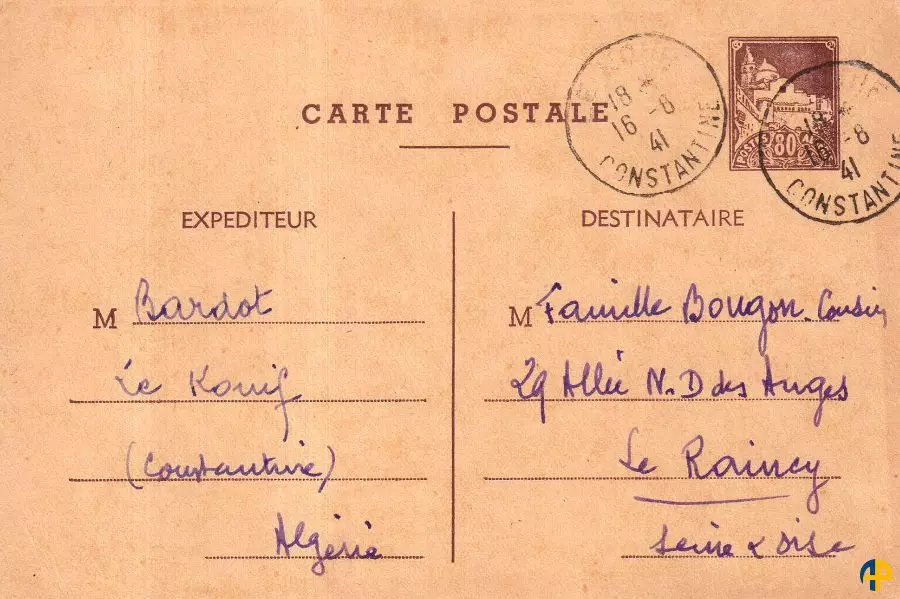 CARTE POSTALE
18 *
16 -8
41
CONSTANTINE
POSTES 80
18 *
16 -8
41
CONSTANTINE
EXPEDITEUR
M Bardot
Le Kouif
(Constantine)
Algérie
DESTINATAIRE
M Famille Bougon-Cousin
29 Allée N.D des Anges
Le Raincy
Seine & Oise